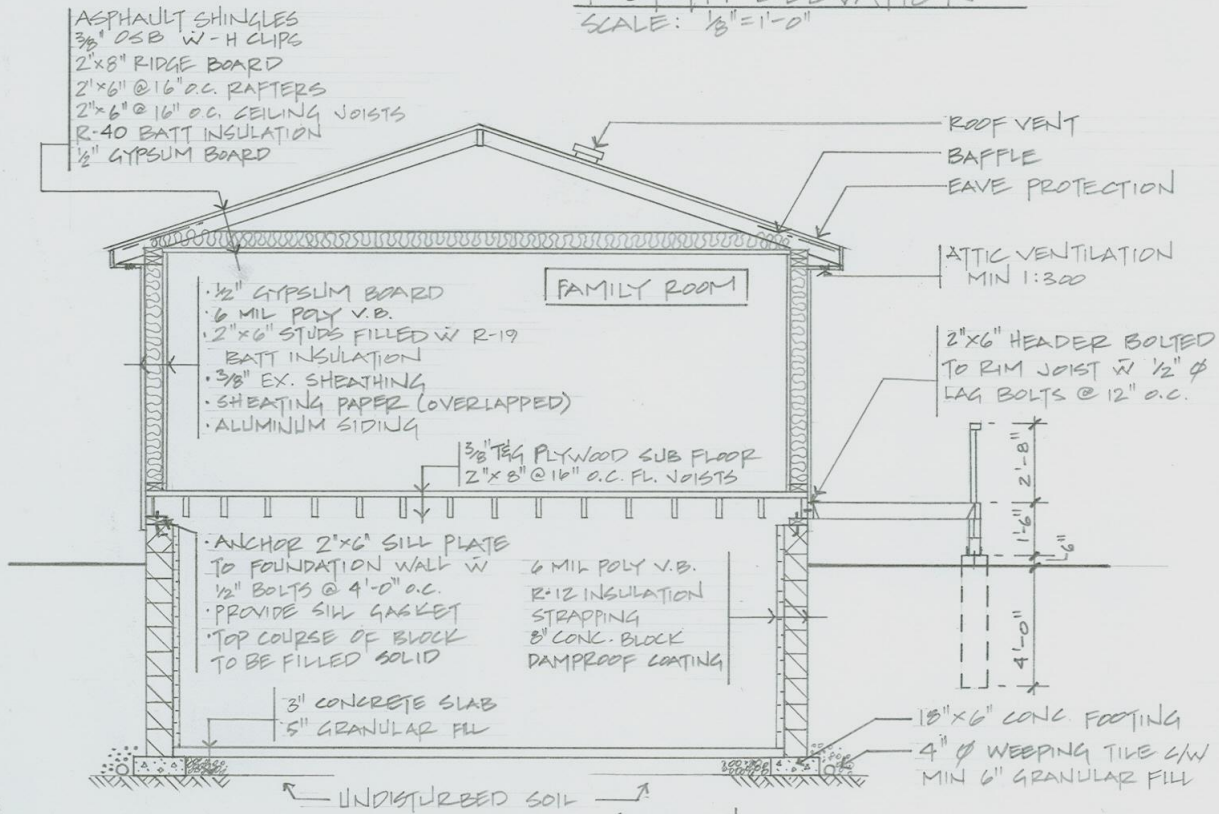 SCALE: 1/8"=1'-0"
ASPHAULT SHINGLES
3/8" OSB W - H CLIPS
2"x8" RIDGE BOARD
2"x6" @ 16" O.C. RAFTERS
2"x6" @ 16" O.C. CEILING JOISTS
R-40 BATT INSULATION
1/2" GYPSUM BOARD
ROOF VENT
BAFFLE
EAVE PROTECTION
ATTIC VENTILATION
MIN 1:300
FAMILY ROOM
· 1/2" GYPSUM BOARD
· 6 MIL POLY V.B.
· 2"x6" STUDS FILLED W̄ R-19
BATT INSULATION
· 3/8" EX. SHEATHING
· SHEATING PAPER (OVERLAPPED)
· ALUMINUM SIDING
2"x6" HEADER BOLTED
TO RIM JOIST W̄ 1/2" Ø
LAG BOLTS @ 12" O.C.
3/8" T&G PLYWOOD SUB FLOOR
2"x8" @ 16" O.C. FL. JOISTS
2'-8"
1'-6"
6"
4'-0"
· ANCHOR 2"x6" SILL PLATE
TO FOUNDATION WALL W̄
1/2" BOLTS @ 4'-0" O.C.
· PROVIDE SILL GASKET
· TOP COURSE OF BLOCK
TO BE FILLED SOLID
6 MIL POLY V.B.
R-12 INSULATION
STRAPPING
8" CONC. BLOCK
DAMPROOF COATING
3" CONCRETE SLAB
5" GRANULAR FILL
18"x6" CONC. FOOTING
4" Ø WEEPING TILE C/W
MIN 6" GRANULAR FILL
UNDISTURBED SOIL